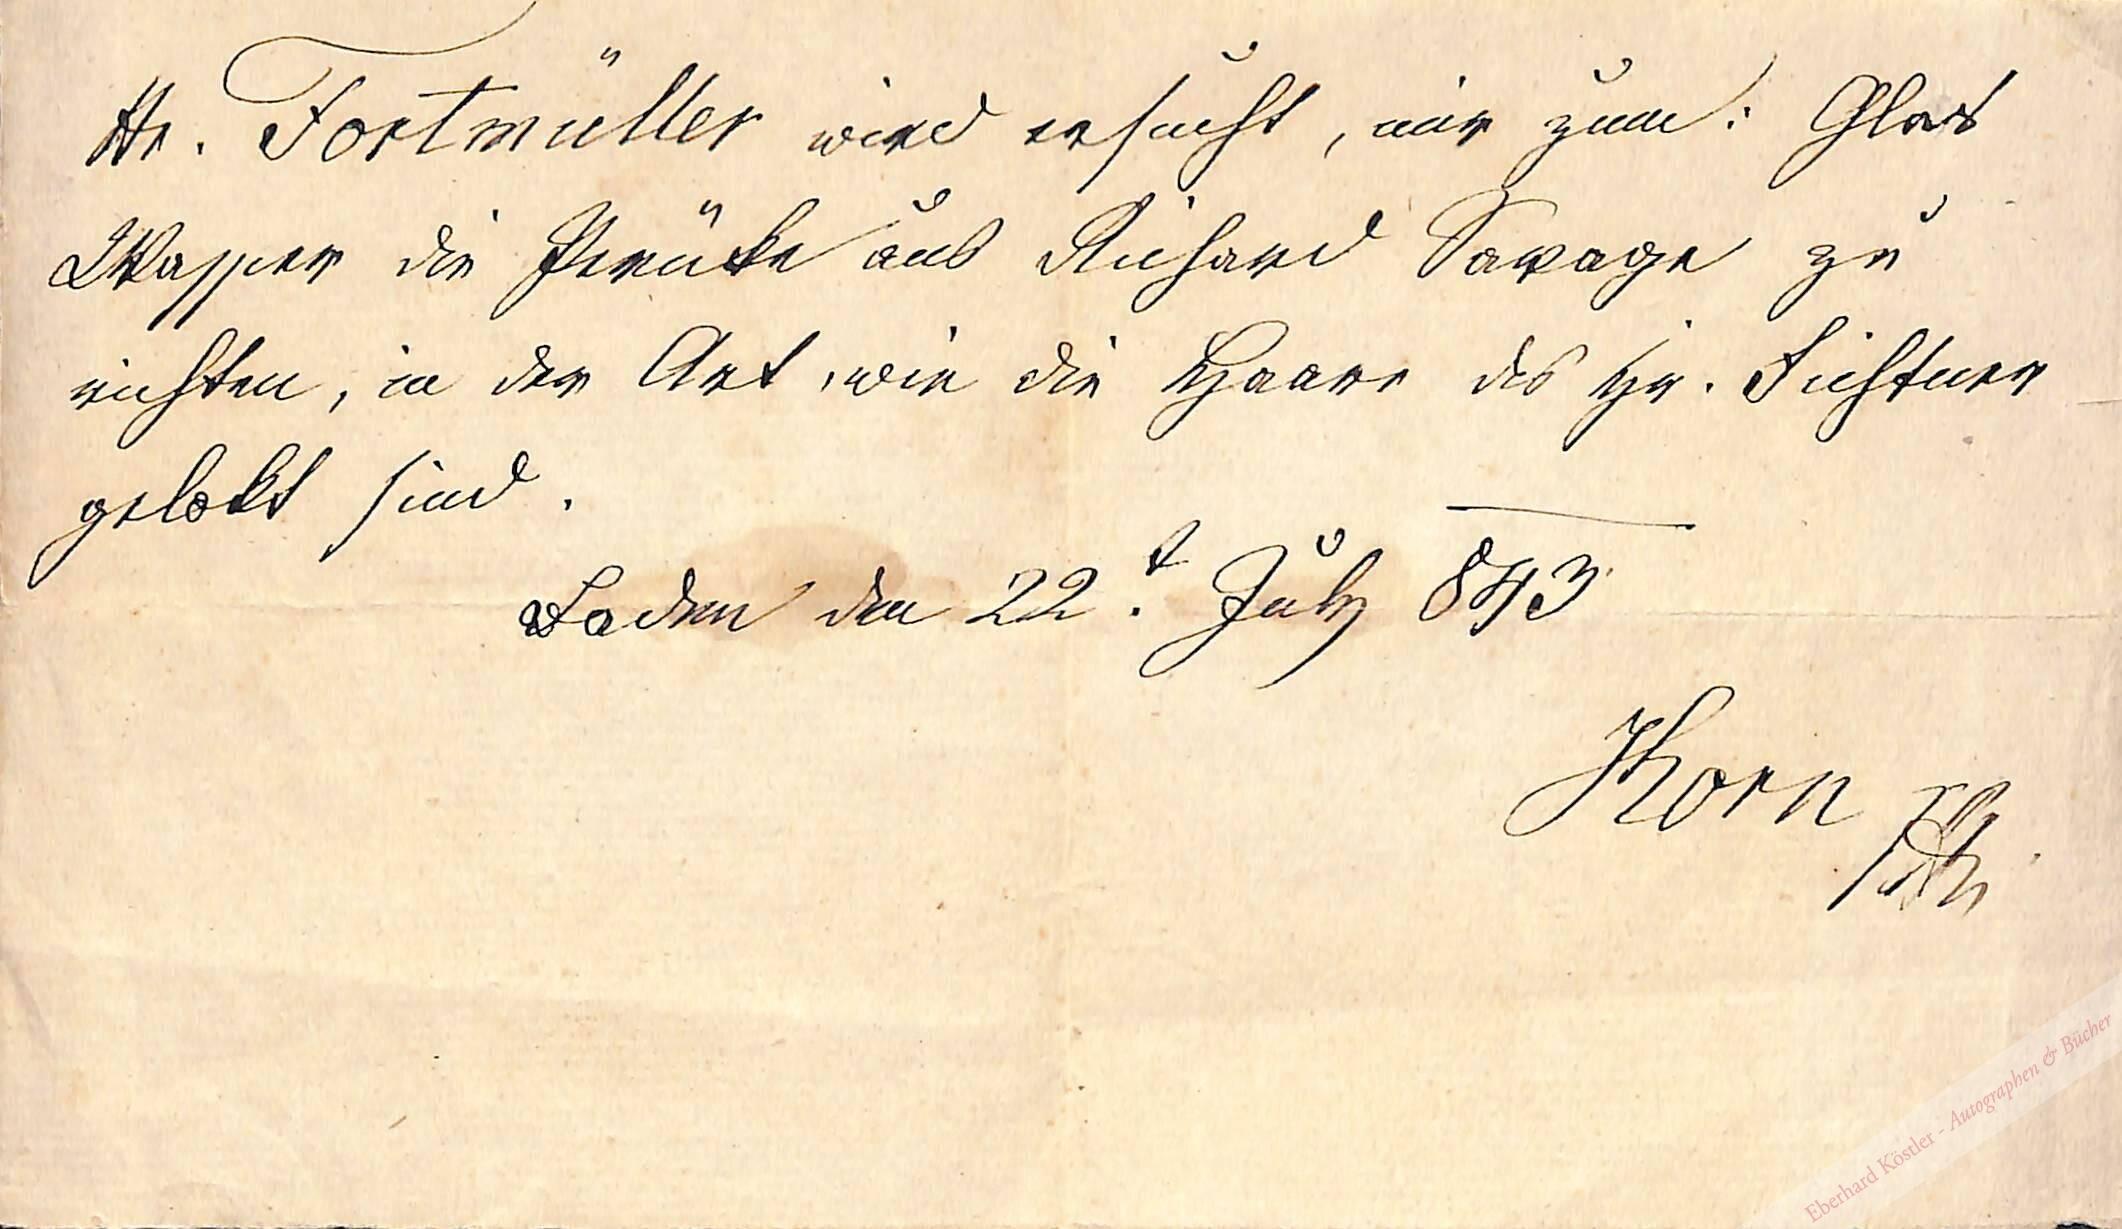 Hr. Fortmüller wird ersucht, mir zum: Glas
Wasser die Perüke aus Richard Savage zu
richten, in der Art, wie die Haare des Hr. Fichtner
gelokt sind.
Baden den 22.t July 843
Korn
Eberhard Köstler - Autographen & Bücher